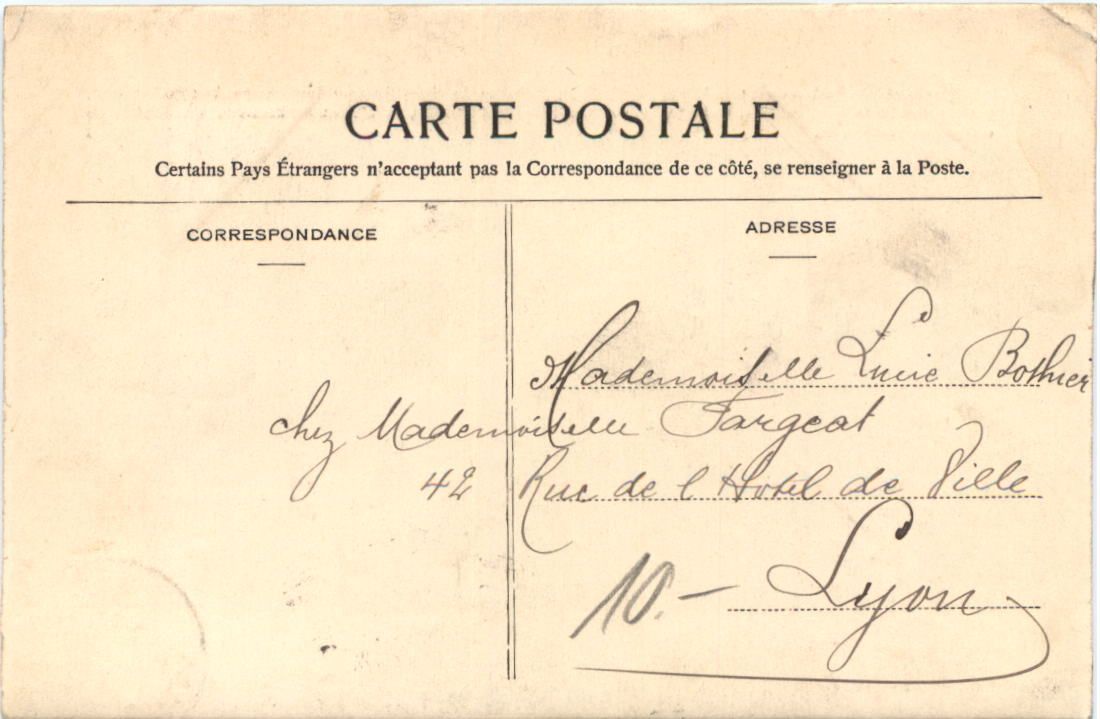 CARTE POSTALE
Certains Pays Étrangers n'acceptant pas la Correspondance de ce côté, se renseigner à la Poste.
CORRESPONDANCE
ADRESSE
Mademoiselle Lucie Bothier
chez Mademoiselle Fargeat
42 Rue de l Hotel de Ville
Lyon
10.-